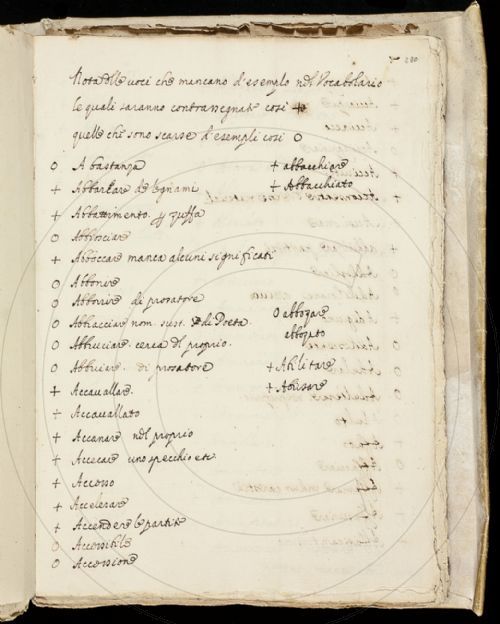 280
Nota delle voci che mancano d'esemplo nel Vocabolario
le quali saranno contrassegnate così +
quelle che sono scarse d'esempli così O
O A bastanza
+ Abbarcare de legnami
+ Abbattimento p zuffa
O
+ Abboccare manca alcuni significati
O Abbonire
O di prosatore
O Abbracciar nom. sust. di Poeta
O Abbruciare. cerca di proprio.
O Abbruciare. di prosatore
+ Accavallare.
+ Accavallato
+ Accanare nel proprio
+ Accecare uno specchio etc.
+ Accesso
+ Accelerare
+ Accendere le partite
O Accessibile
O Accessione
+ abbacchiare
+ Abbacchiato
O abbozare
abbozato
+ Abilitare
+